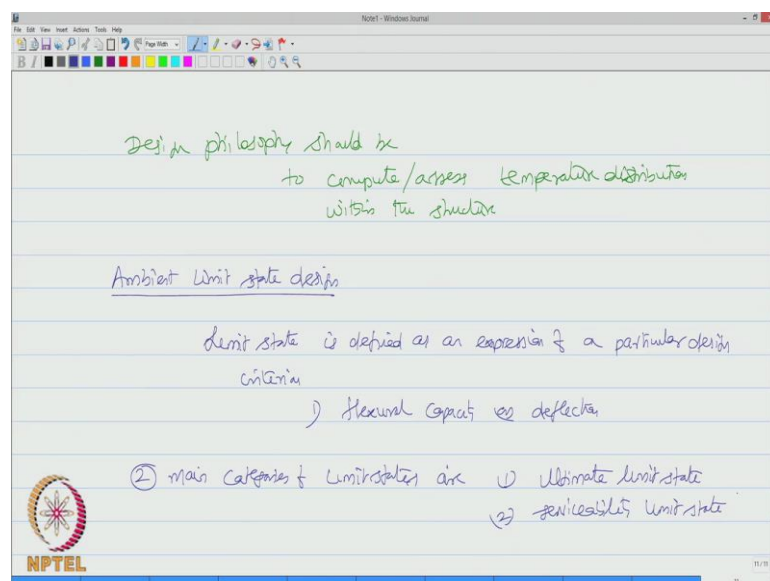 Note1 - Windows Journal
File Edit View Insert Actions Tools Help
Page Width
B I
Design philosophy should be
to compute/assess temperature distribution
within the structure
Ambient Limit state design
Limit state is defined as an expression of a particular design
criterion
1) flexural capacity or deflection
② main categories of Limit states are 1) Ultimate limit state
(2) serviceability limit state
NPTEL
11/11